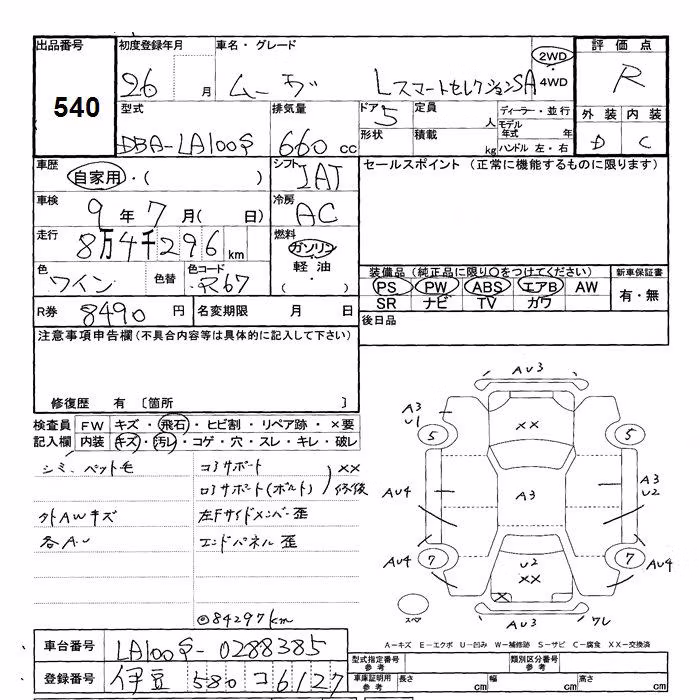 出品番号
540
初度登録年月
26 月
車名・グレード
ムーヴ LスマートセレクションSA
2WD・4WD
評価点
R
外装 内装
D C
型式
DBA-LA100S
排気量
660 cc
ドア
5
形状
定員 人
積載 kg
ディーラー・並行
モデル年式 年
ハンドル 左・右
車歴
自家用・( )
シフト
IAT
セールスポイント (正常に機能するものに限ります)
車検
9年7月( 日)
冷房
AC
走行
8万4千296km
燃料
ガソリン
軽油
・( )
色
ワイン
色替
色コード
R67
装備品(純正品に限り○をつけてください)
PS PW ABS エアB AW
SR ナビ TV カワ
新車保証書
有・無
R券 8490円
名変期限 月 日
後日品
注意事項申告欄(不具合内容等は具体的に記入して下さい)
修復歴 有 〔箇所 〕
検査員記入欄
FW キズ・飛石・ヒビ割・リペア跡・×要
内装 キズ・汚レ・コゲ・穴・スレ・キレ・破レ
シミ、ペット毛
コアサポート
××
ロアサポート(ボルト) 修後
外AWキズ
左Fサイドメンバー歪
各AU
エンドパネル歪
◎84297km
AU3
A3
U1
5
××
5
AU4
A3
A3
U2
AU4
7
U2
××
7
AU4
×
スペア
AU3
ワレ
A-キズ E-エクボ U-凹み W-補修跡 S-サビ C-腐食 XX-交換済
車台番号
LA100S-0288385
登録番号
伊豆 580 コ 6127
型式指定番号
参考
類別区分番号
参考
車庫証明用
参考
長さ cm
幅 cm
高さ cm